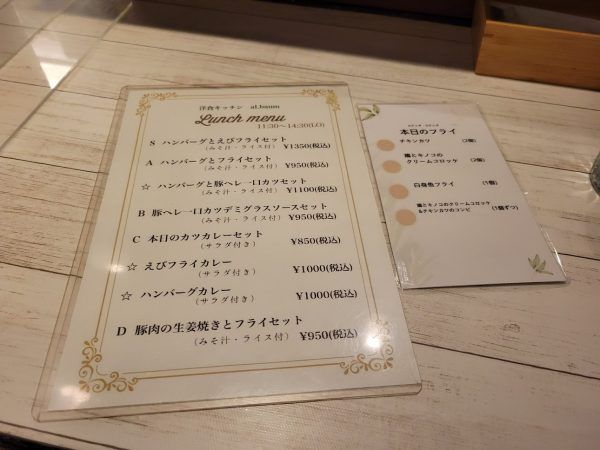 洋食キッチン al.baum
Lunch menu
11:30〜14:30(LO)
S ハンバーグとえびフライセット
(みそ汁・ライス付) ¥1350(税込)
A ハンバーグとフライセット
(みそ汁・ライス付) ¥950(税込)
☆ ハンバーグと豚ヘレ一口カツセット
(みそ汁・ライス付) ¥1100(税込)
B 豚ヘレ一口カツデミグラスソースセット
(みそ汁・ライス付) ¥950(税込)
C 本日のカツカレーセット
(サラダ付き) ¥850(税込)
☆ えびフライカレー
(サラダ付き) ¥1000(税込)
☆ ハンバーグカレー
(サラダ付き) ¥1000(税込)
D 豚肉の生姜焼きとフライセット
(みそ汁・ライス付) ¥950(税込)
本日のフライ
チキンカツ (2個)
鶏とキノコの
クリームコロッケ (2個)
白身魚フライ (1個)
鶏とキノコのクリームコロッケ
&チキンカツのコンビ (1個ずつ)